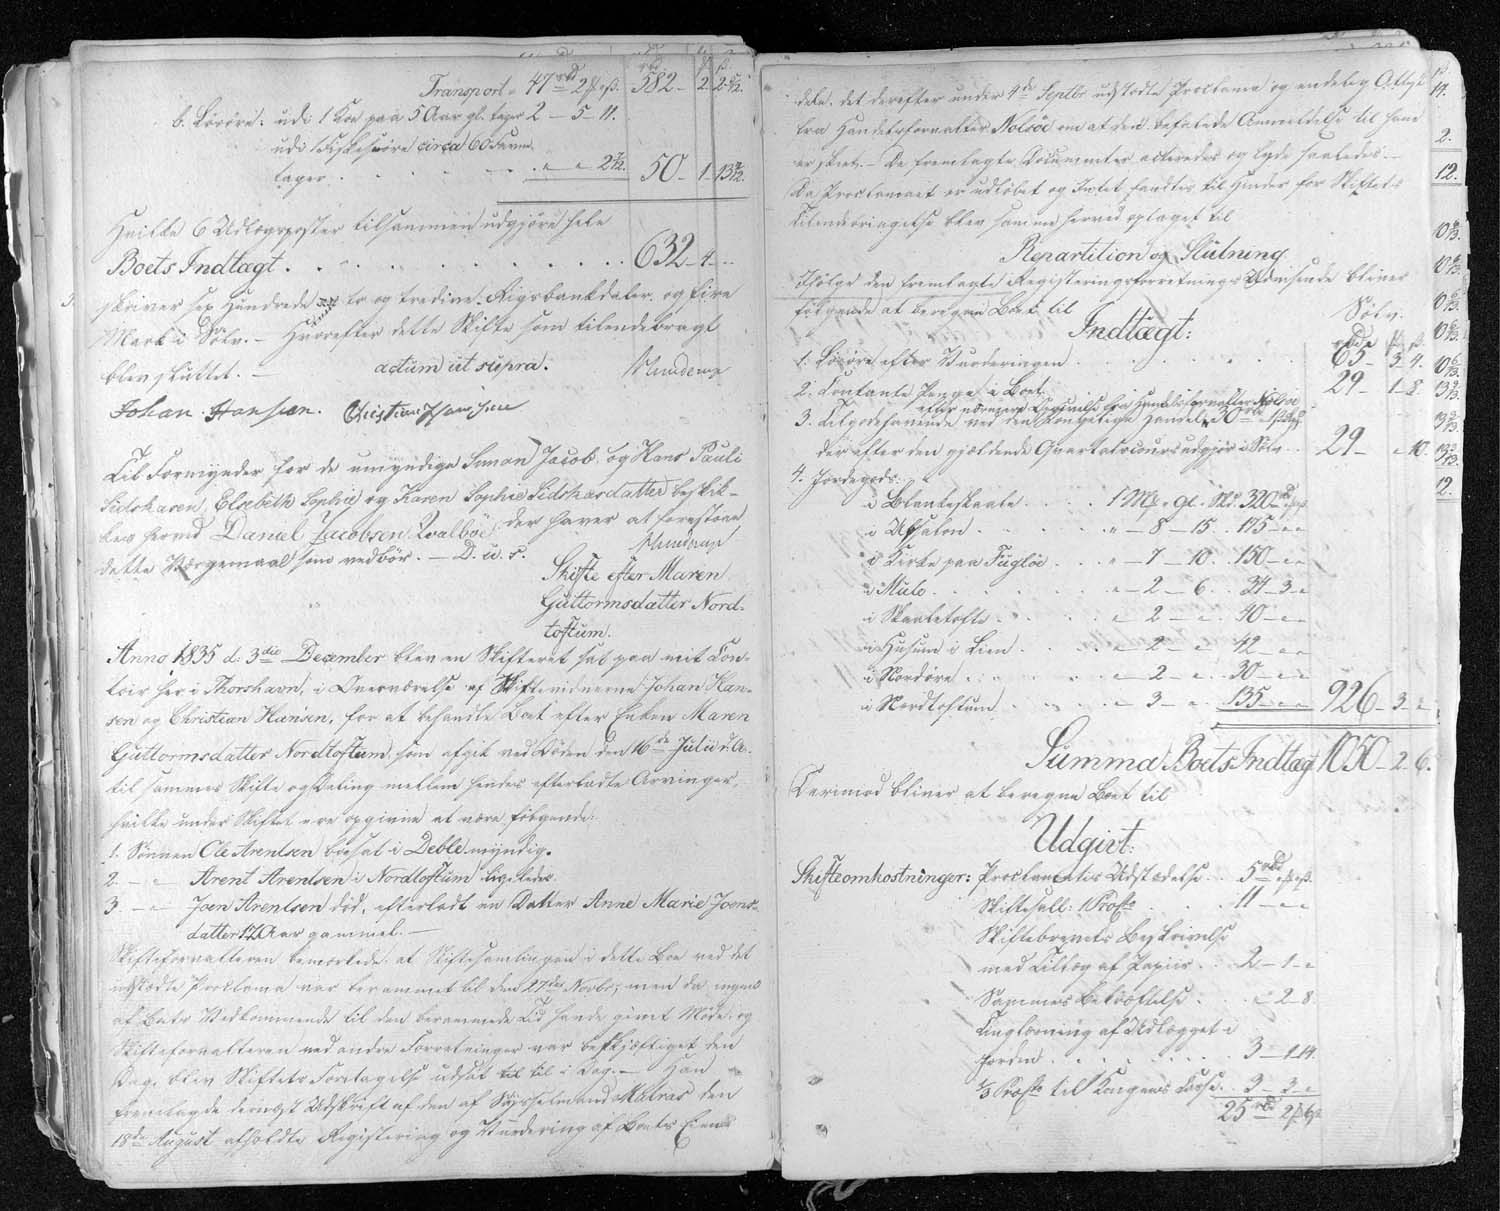 Transport „ 47 rbd 2 mk „ ß. 582 – 2 – 2 2/12.
b. Løsøre: udi 1 Koe paa 5 Aar gl. taxer 2 – 5 – 11.
udi 1 Fiskesnøre circa 60 Favne
taxer . . . . . „ – „ – 2 7/12. 50 – 1 – 13 9/12.
Hvilke 6 Udlægsposter tilsammen udgjøre hele
Boets Indtægt . . . . . . . . . . 632 – 4 – „
skriver sex Hundrede to og tredive Rigsbankdaler og fire
Mark i Sølv. – Hvorefter dette Skifte som tilendebragt
blev sluttet. – actum ut supra.
Johan Hansen. Christian Hansen
Til Formynder for de umyndige Simon Jacob og Hans Pauli
Sidshasen, Elsebeth Sophie og Karen Sophie Sidshasdatter beskik-
kes herved Daniel Jacobsen Qvalbøe, der haver at forestaae
dette Værgemaal som vedbør. – D. u. s.
Skifte efter Maren
Guttormsdatter Nord-
toftum.
Anno 1835 d. 3die December blev en Skifteret sat paa mit Con-
toir her i Thorshavn, i Overværelse af Skiftevidnerne Johan Han-
sen og Christian Hansen, for at behandle Boet efter Enken Maren
Guttormsdatter Nordtoftum, som afgik ved Døden den 16de Julii d. A.
til sammes Skifte og Deling mellem hendes efterladte Arvinger,
hvilke under Skiftet ere opgivne at være følgende:
1. Sønnen Ole Arentsen boesat i Deble myndig.
2. – „ – Arent Arentsen i Nordtoftum ligeledes.
3. – „ – Joen Arentsen død, efterladt en Datter Anne Marie Joens-
datter 17 Aar gammel. –
Skifteforvalteren bemærkede at Skiftesamlingen i dette Boe ved det
udstædte Proclama var berammet til den 27de Novbr, men da ingen
af Boets Vedkommende til den berammede Tid havde givet Møde og
Skifteforvalteren med andre Forretninger var beskjæftiget den
Dag, blev Skiftets Foretagelse udsat til i Dag. – Han
fremlagde dernæst Udskrift af den af Sysselmand Matras den
18de August afholdte Registering og Vurdering af Boets Eien-
dele, det derefter under 4de Septbr udstædte Proclama og endelig Attest
fra Handelsforvalter Nolsøe om at den befalede Anmeldelse til ham
er skeet. – De fremlagte Documenter acteredes og lyde saaledes: –
Da Proclamaet er udløbet og Intet fandtes til Hinder for Skiftets
Tilendebringelse blev samme herved optaget til
Repartition og Slutning
Ifølge den fremlagte Registeringsforretnings Udvisende bliver
følgende at beregne Boet til
Indtægt: Sølv.
1. Løsøre efter Vurderingen . . . . 65 – 3 – 4.
2. Contante Penge i Boet . . . 29 – 1 – 8.
efter nærmere Opgivelse fra Handelsforvalter Nolsøe
3. Tilgodehavende ved den Kongelige Handel 30 rbd
der efter den gjældende Qvartalscours udgjør i Sølv . . 29 – „ – 10.
4. Jordegods:
i Blankeskaale . . . . 1 Mk „ gl. – Skd. 320 rbd „ „ ß.
i Ufsalon . . . . . „ – 8 – 15. 175 – „ – „
i Kirke paa Fugløe . . . „ – 7 – 10. 150 – „ – „
i Mule . . . . . . „ – 2 – 6. 34 – 3 – „
i Skaaletofte . . . . „ – 2 – „ . 40 – „ – „
i Husum i Lien . . . . „ – 2 – „ . 42 – „ – „
i Nordøre . . . . . „ – 2 – „ . 30 – „ – „
i Nordtoftum . . . . „ – 3 – „ . 135 – „ – „ 926 – 3 – „
Summa Boets Indtægt 1050 – 2 – 6.
Derimod bliver at beregne Boet til
Udgivt:
Skifteomkostninger: Proclamatis Udstædelse . . 5 rbd „ mk „ ß.
Skiftesall: 1 Procto . . . . 11 – „ – „
Skiftebrevets Beskrivelse
med Tillæg af Papiir . . 2 – 1 – „
Sammes Bekræftelse . . „ – 2 – 8.
Tinglæsning af Udlægget i
Jorden . . . . . . 3 – 1 – 14.
1/3 Procto til Kongens Casse . . 3 – 3 – „
25 rbd 2 mk 6 ß